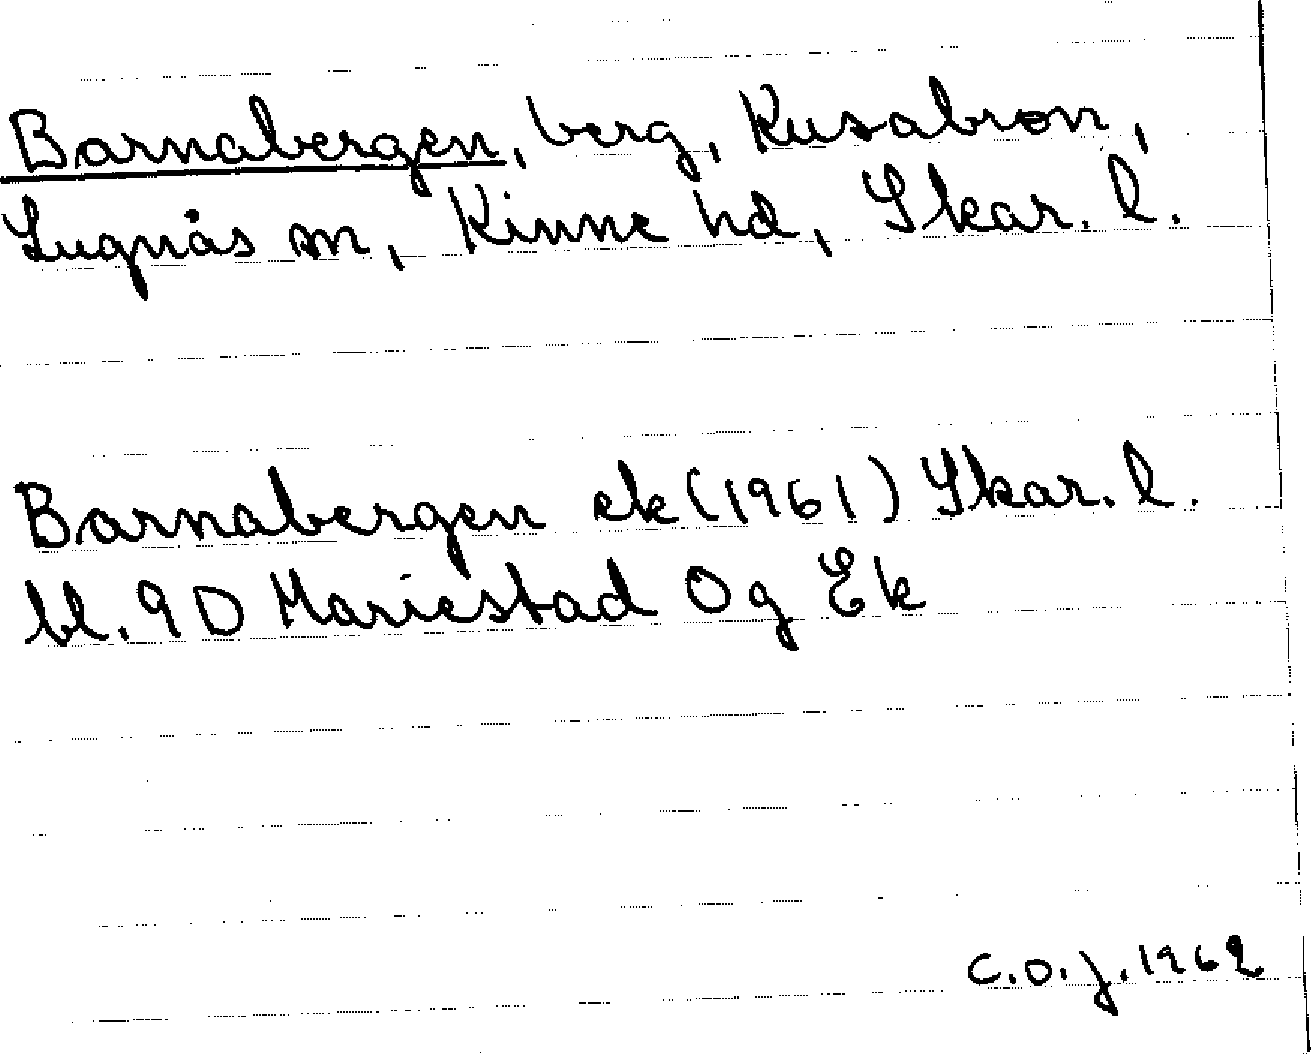 Barnabergen, berg, Kusabron,
Lugnås sn, Kinne hd, Skar. l.
Barnabergen ek (1961) Skar. l.
bl. 9D Mariestad Og Ek
C.O.J. 1962